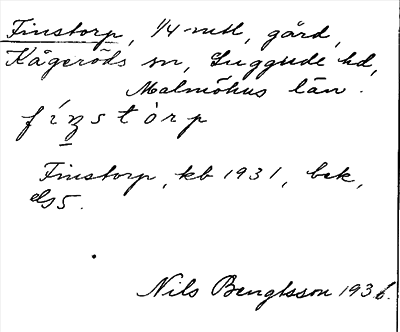 Finstorp, 1/4-mtl, gård,
Kågeröds sn, Luggude hd,
Malmöhus län.
fízstòrp
Finstorp, kb 1931, bek,
GS.
Nils Bengtsson 1936.